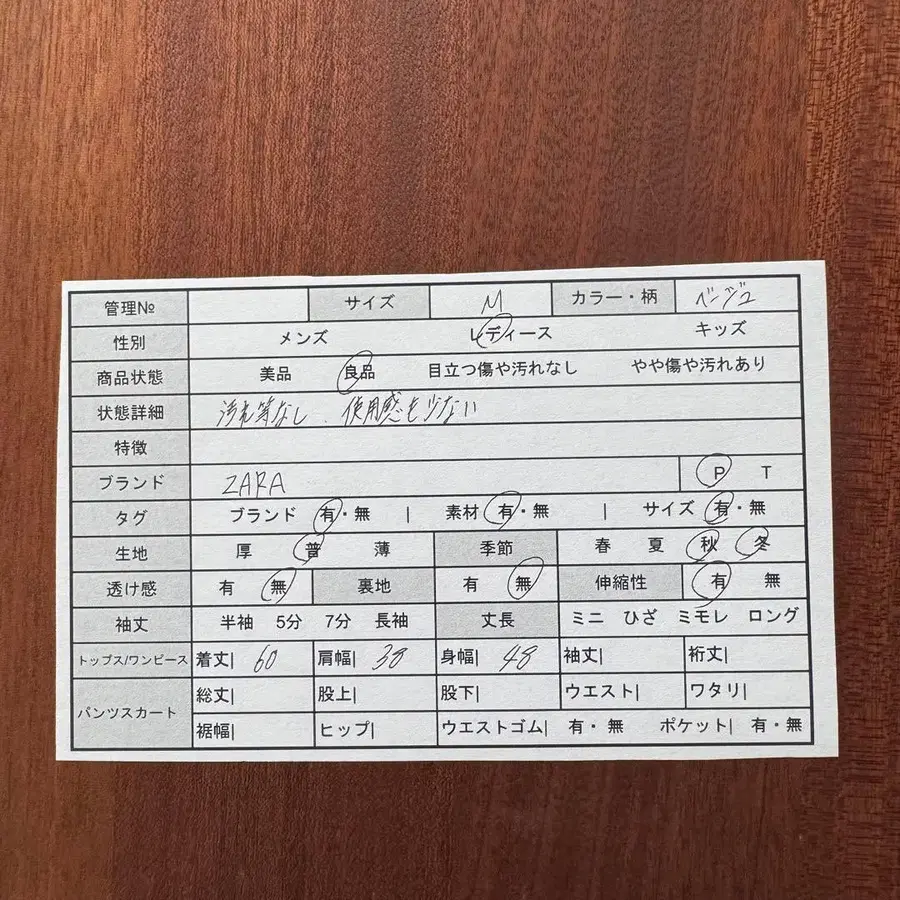 管理№ サイズ M カラー・柄 ベージュ
性別 メンズ レディース キッズ
商品状態 美品 良品 目立つ傷や汚れなし やや傷や汚れあり
状態詳細 汚れ等なし、使用感も少ない
特徴
ブランド ZARA P T
タグ ブランド 有・無 | 素材 有・無 | サイズ 有・無
生地 厚 普 薄 季節 春 夏 秋 冬
透け感 有 無 裏地 有 無 伸縮性 有 無
袖丈 半袖 5分 7分 長袖 丈長 ミニ ひざ ミモレ ロング
トップス/ワンピース 着丈| 60 肩幅| 38 身幅| 48 袖丈| 裄丈|
パンツスカート 総丈| 股上| 股下| ウエスト| ワタリ|
裾幅| ヒップ| ウエストゴム| 有・無 ポケット| 有・無